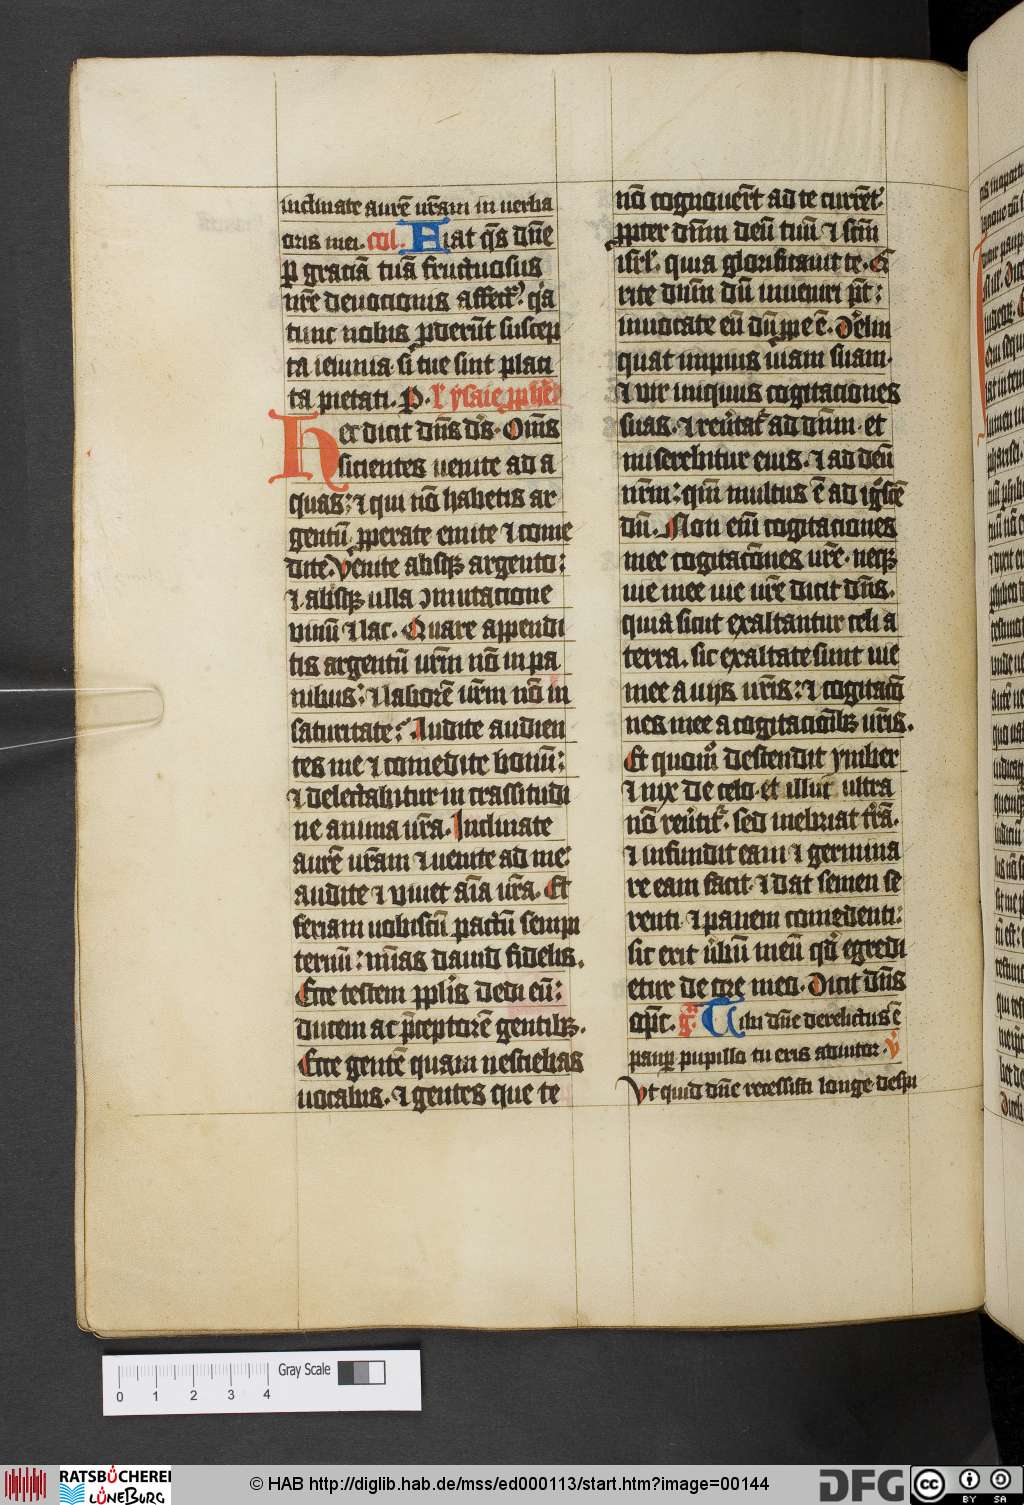 inclinate aurē vr̄am in verba
oris mei. col. Fiat q̄s dn̄e
ꝑ graciā tuā fructuosus
nr̄e deuocionis affect⁹. q̄a
tunc nobis ꝓderūt suscep
ta ieiunia si tue sint placi
ta pietati. P. l' ysaie ꝓphē
Hec dicit dn̄s ds̄. Om̄s
sicientes venite ad a
quas: ⁊ qui nō habetis ar
gentū ꝓperate emite ⁊ come
dite. Venite absqꝫ argento:
⁊ absqꝫ ulla ꝯmutacione
vinū ⁊ lac. Quare appendi
tis argentū vrm̄ nō in pa
nibus: ⁊ laborē vrm̄ nō in
saturitate: Audite audien
tes me ⁊ comedite bonū:
⁊ delectabitur in crassitudi
ne anima vr̄a. Inclinate
aurē vr̄am ⁊ venite ad me:
audite ⁊ viuet aīa vr̄a. Et
feriam vobiscū pactū sempi
ternū: mīas dauid fidelis.
Ecce testem ppl'is dedi eū:
ducem ac p̄ceptorē gentibꝫ.
Ecce gentē quam nesciebas
vocabis. ⁊ gentes que te
nō cognouer̄t ad te current
ꝓpter dn̄m deū tuū ⁊ scm̄
isrl'. quia glorificauit te. Q̄
rite dn̄m dū inueniri pt̄:
inuocate eū dū ꝓpe ē. Derelin
quat impius viam suam.
⁊ vir iniquus cogitaciones
suas. ⁊ reu'tat' ad dn̄m. et
miserebitur eius. ⁊ ad deū
nrm̄: qm̄ multus ē ad ignoscē
dū. Non em̄ cogitaciones
mee cogitacōnes vr̄e. neqꝫ
vie mee vie vr̄e dicit dn̄s.
quia sicut exaltantur celi a
terra. sic exaltate sunt vie
mee a vijs vr̄is: ⁊ cogitacō
nes mee a cogitacionibꝫ vr̄is.
Et quom̊ descendit ymber
⁊ nix de celo. et illuc ultra
nō reu'tit'. sed inebriat tr̄ā.
⁊ infundit eam ⁊ germina
re eam facit. ⁊ dat semen se
renti. ⁊ panem comedenti:
sic erit v'bū meū qd̄ egredi
etur de ore meo. Dicit dn̄s
op̄c. gͣ. Tibi dn̄e derelictus ē
pauꝑ pupillo tu eris adiutor. v̄
Vt quid dn̄e recessisti longe despi
Gray Scale
0 1 2 3 4
RATSBÜCHEREI LÜNEBURG
© HAB http://diglib.hab.de/mss/ed000113/start.htm?image=00144
DFG
cc BY SA